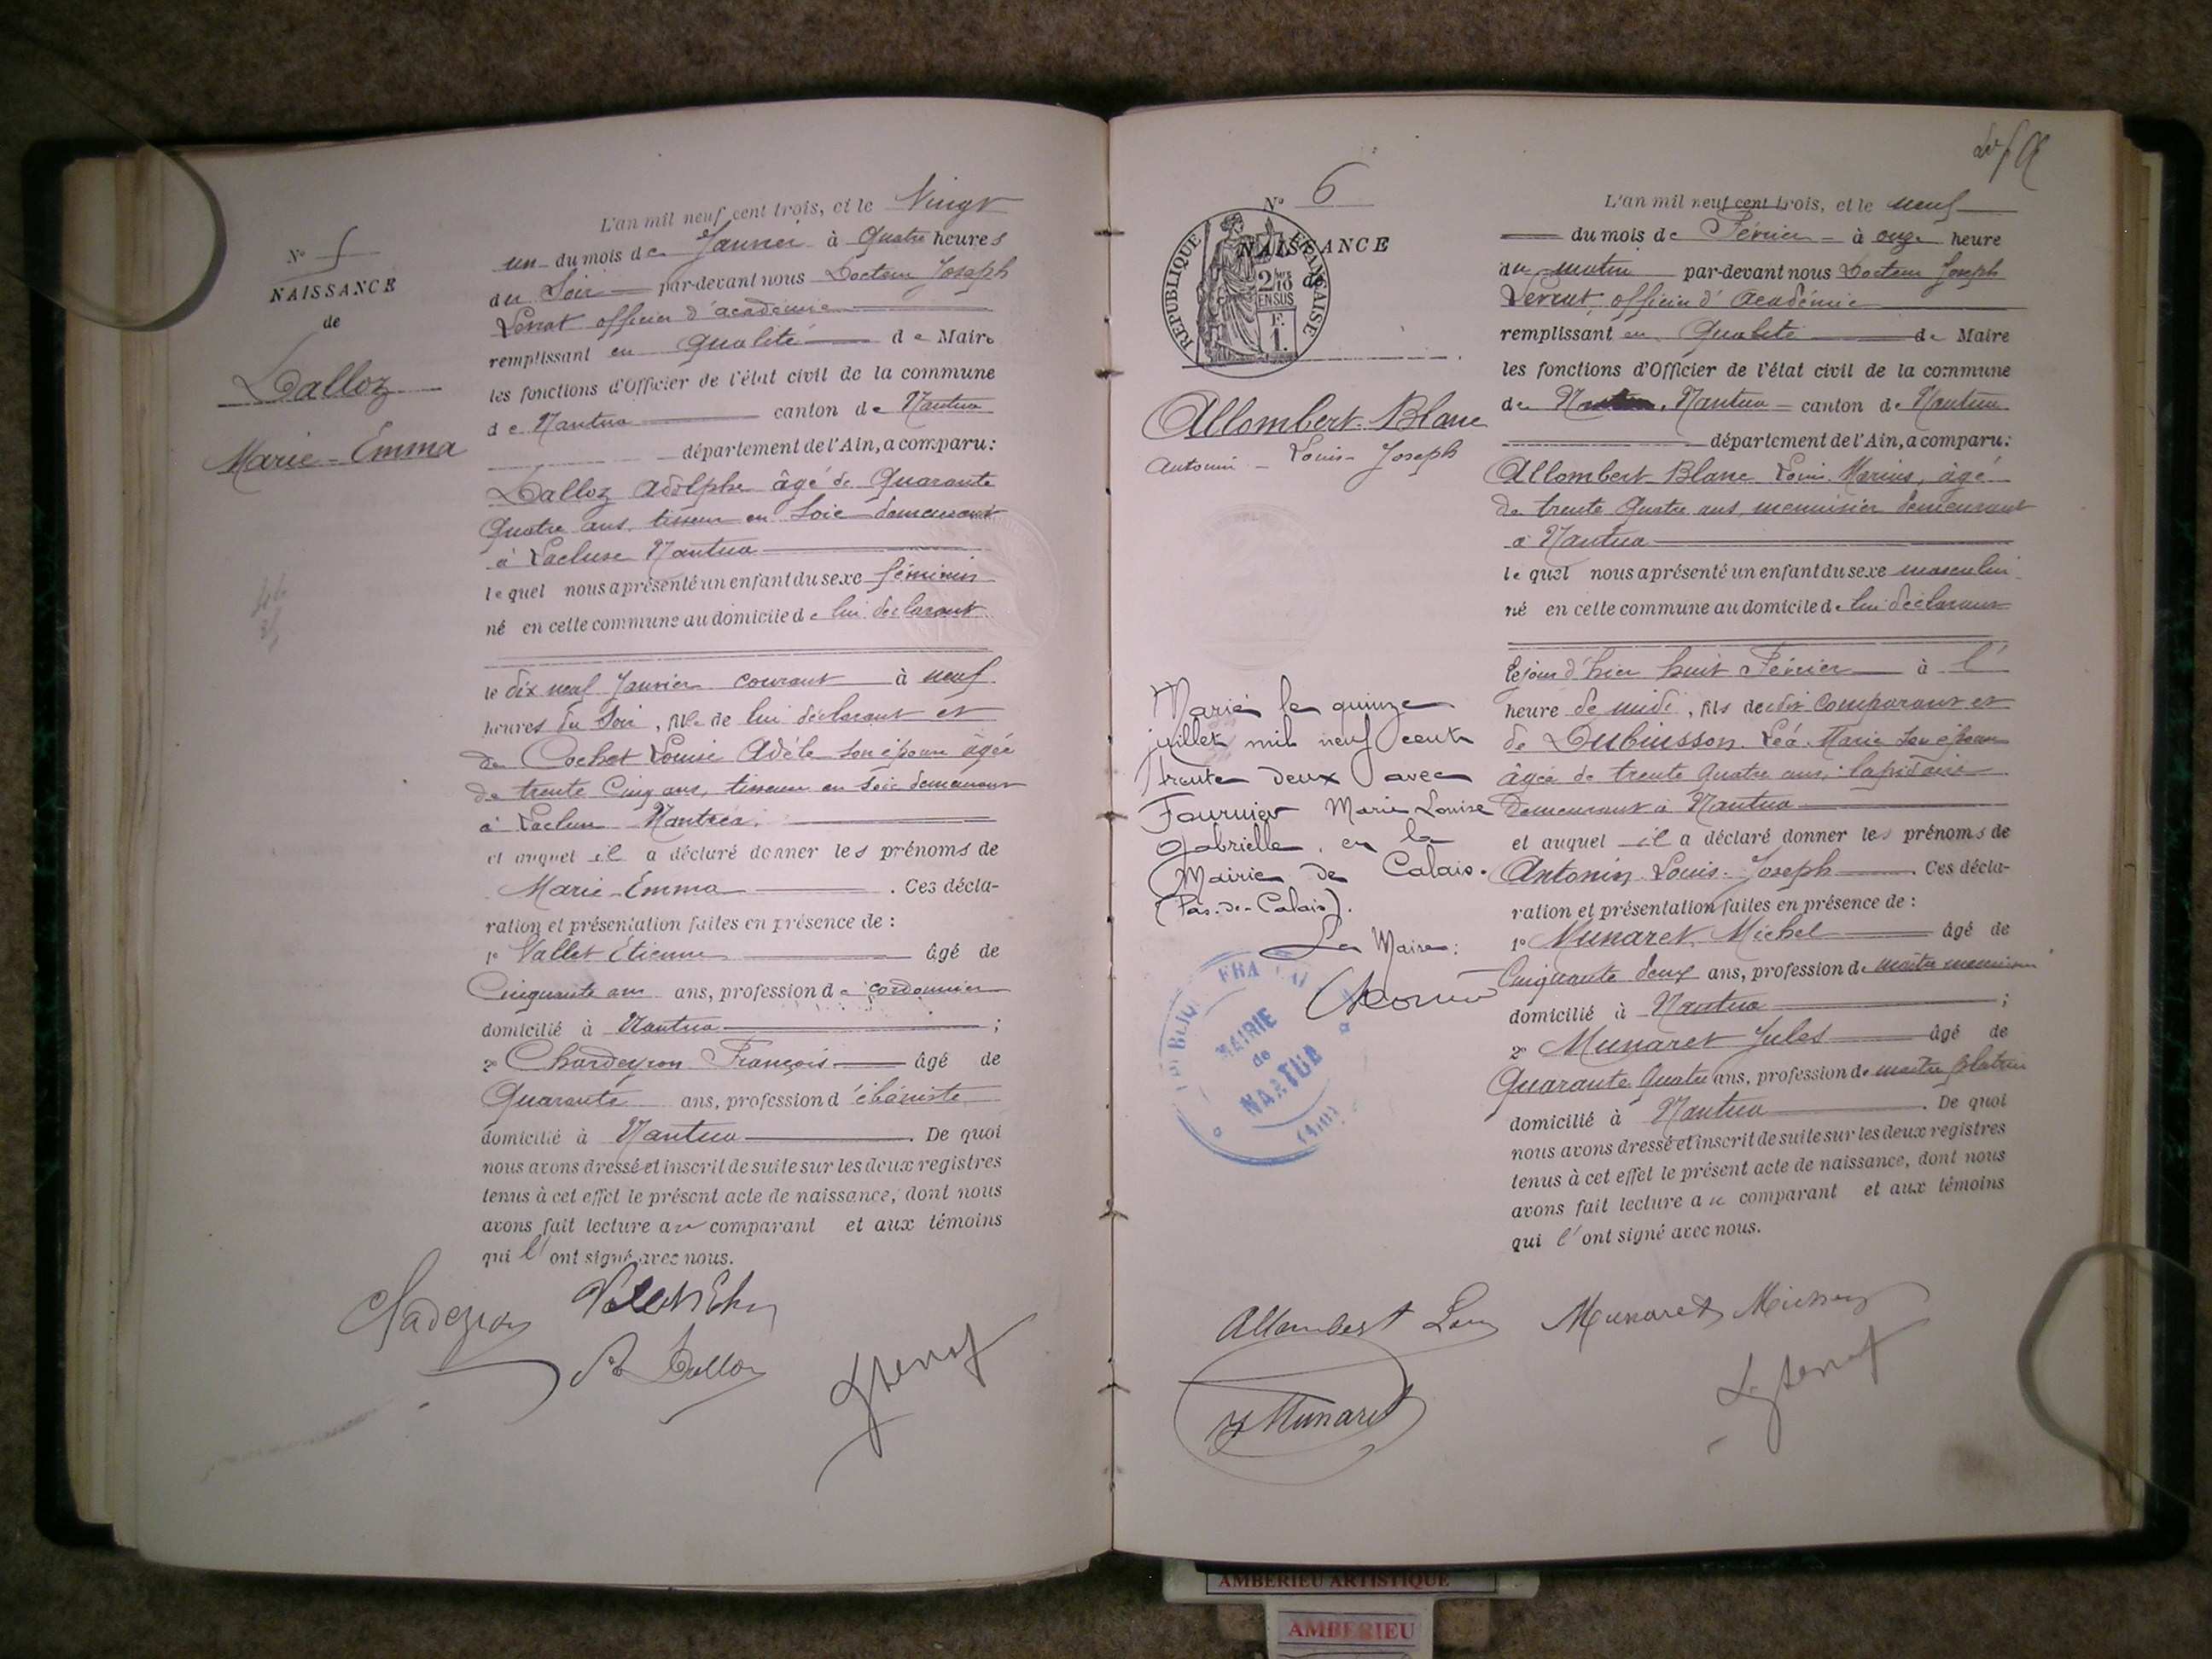 N° 5
NAISSANCE
de
Dalloz
Marie-Emma
L'an mil neuf cent trois, et le Vingt
un du mois de Janvier à Quatre heures
du Soir par-devant nous Docteur Joseph
officier d'académie
remplissant en Qualité de Maire
les fonctions d'Officier de l'état civil de la commune
de Nantua canton de Nantua
département de l'Ain, a comparu:
Dalloz Adolphe âgé de Quarante
Quatre ans, tisseur en Soie demeurant
à Lacluse Nantua
lequel nous a présenté un enfant du sexe féminin
né en cette commune au domicile de lui déclarant
le dix neuf Janvier courant à neuf
heures du Soir, fille de lui déclarant et
de Cochet Louise Adèle son épouse âgée
de trente Cinq ans, tisseuse en Soie demeurant
à Lacluse Nantua.
et auquel il a déclaré donner les prénoms de
Marie-Emma. Ces décla-
ration et présentation faites en présence de :
1° Vallet Etienne âgé de
Cinquante ans ans, profession de cordonnier
domicilié à Nantua ;
2° Chardeyron François âgé de
Quarante ans, profession d'ébéniste
domicilié à Nantua. De quoi
nous avons dressé et inscrit de suite sur les deux registres
tenus à cet effet le présent acte de naissance, dont nous
avons fait lecture au comparant et aux témoins
qui l'ont signé avec nous.
N° 6
NAISSANCE
de
REPUBLIQUE FRANÇAISE
2/10 EN SUS
F.
1.
Allombert-Blanc
Antonin-Louis-Joseph
Marié le quinze
juillet mil neuf cent
trente deux avec
Fournier Marie Louise
Gabrielle, en la
Mairie de Calais.
(Pas-de-Calais).
Le Maire:
MAIRIE
de
NANTUA
(Ain)
L'an mil neuf cent trois, et le neuf
du mois de Février à onze heure
du matin par-devant nous Docteur Joseph
officier d'Académie
remplissant en Qualité de Maire
les fonctions d'Officier de l'état civil de la commune
de Nantua canton de Nantua
département de l'Ain, a comparu:
Allombert Blanc Louis Marius, âgé
de trente Quatre ans, menuisier demeurant
à Nantua
lequel nous a présenté un enfant du sexe masculin
né en cette commune au domicile de lui déclarant
le jour d'hier huit Février à l'
heure de midi, fils dudit Comparant et
de Dubuisson Léa Marie son épouse
âgée de trente Quatre ans, lapidaire
demeurant à Nantua
et auquel il a déclaré donner les prénoms de
Antonin-Louis-Joseph. Ces décla-
ration et présentation faites en présence de :
1° Munaret Michel âgé de
Cinquante deux ans, profession de maître menuisier
domicilié à Nantua ;
2° Munaret Jules âgé de
Quarante Quatre ans, profession de maître plâtrier
domicilié à Nantua. De quoi
nous avons dressé et inscrit de suite sur les deux registres
tenus à cet effet le présent acte de naissance, dont nous
avons fait lecture au comparant et aux témoins
qui l'ont signé avec nous.
Allombert Louis Munaret
J Munaret
AMBERIEU ARTISTIQUE
AMBERIEU